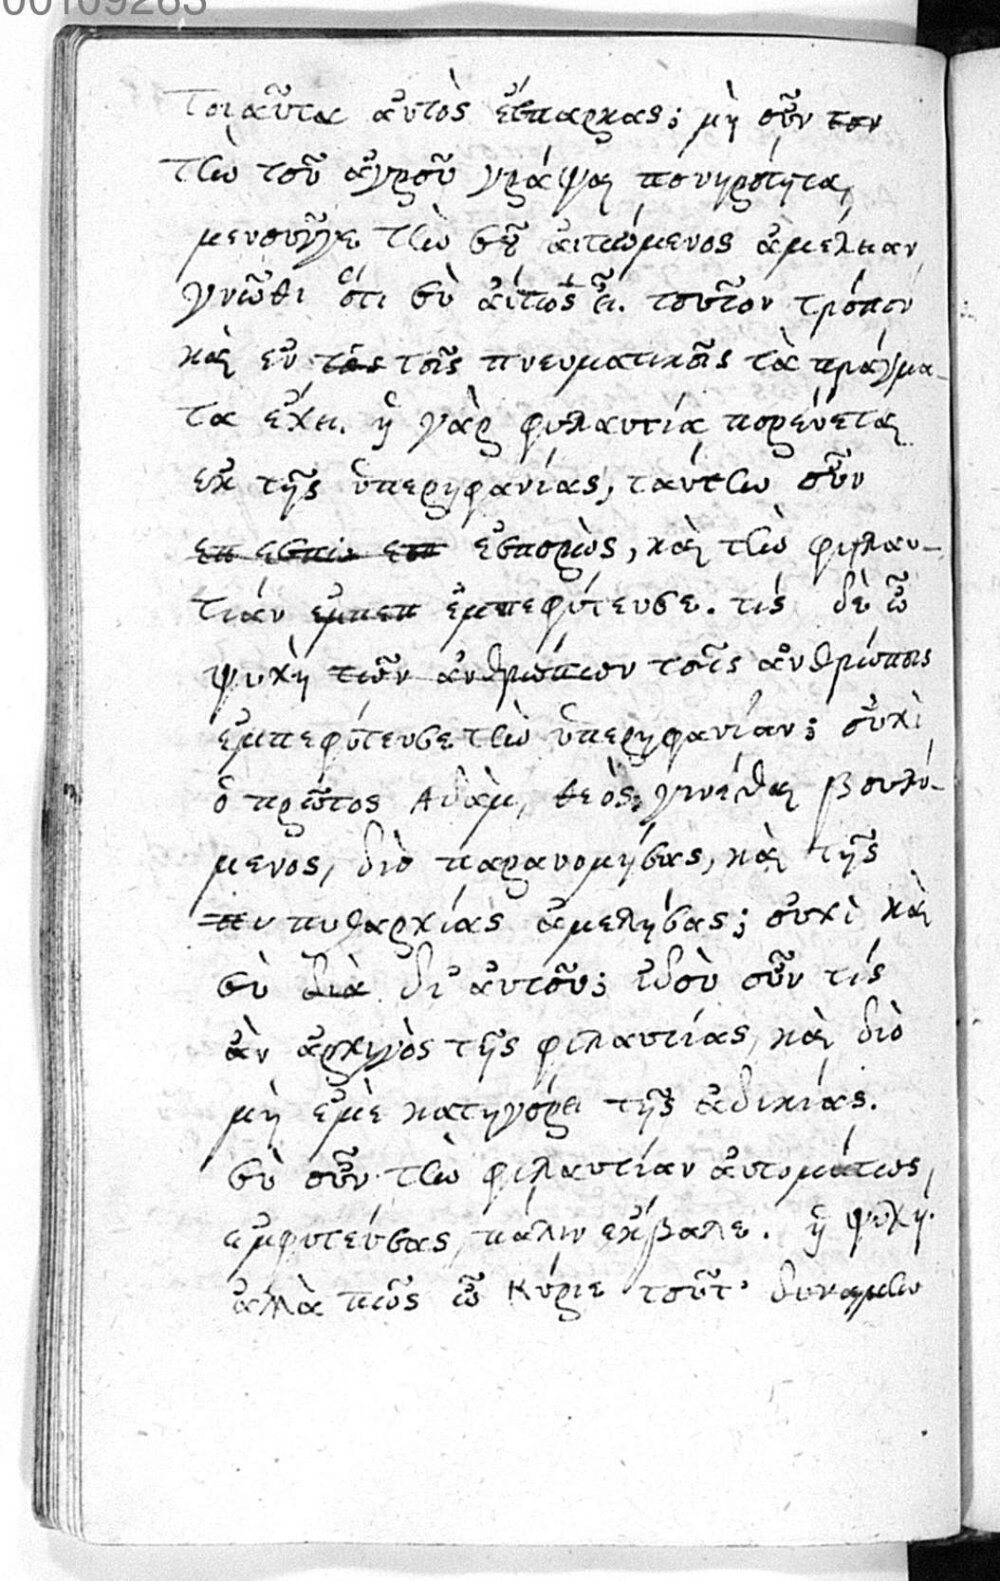 τοιαῦτα αὐτὸς ἔσπαρκας; μὴ οὖν τον
τὴν τοῦ ἀγροῦ γράψαι πονηρότητα,
μενοῦνγε τὴν σεῦ αἰτιώμενος ἀμέλειαν
γνῶθι ὅτι σὺ αἴτιος εἶ. τοῦτον τρόπον
καὶ ἐν τὸς τοῖς πνευματικοῖς τὰ πράγμα-
τα ἔχει. ἡ γὰρ φιλαυτία πορεύεται
ἐκ τῆς ὑπερηφανίας, ταύτην οὖν
επ εσπι επ ἐσπορὼς, καὶ τὴν φιλαυ-
τίαν εμπεπ ἐμπεφύτευσε. τίς δὲ ὦ
ψυχὴ τῶν ἀνθρώπων τοῖς ἀνθρώποις
ἐμπεφύτευσε τὴν ὑπερηφανίαν; οὐχὶ
ὁ πρῶτος Αδὰμ, θεὸς γενέσθαι βουλό-
μενος, διὸ παρανομήσας, καὶ τῆς
πι πειθαρχίας ἀμελήσας; οὐχὶ καὶ
σὺ διὰ δι' αὐτοῦ; ἰδοὺ οὖν τίς
ἀν ἀρχηγὸς τῆς φιλαυτίας, καὶ διὸ
μὴ ἐμὲ κατηγόρει τῆς ἀδικίας.
σὺ οὖν τὴν φιλαυτίαν αὐτομάτως,
ἐμφυτεύσας, πάλιν ἔκβαλε. ἡ ψυχή.
ἀλλὰ πῶς ὦ Κύριε τοῦτ' δυναίμην